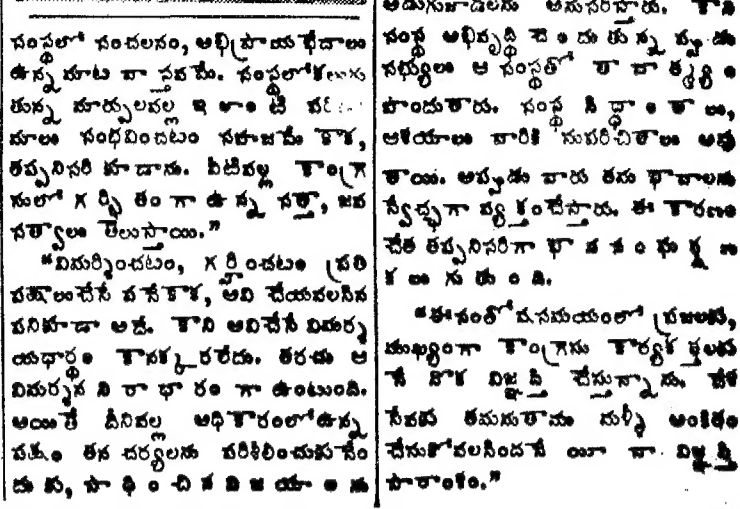 సంస్థలో సంచలనం, అభిప్రాయ భేదాలు
ఉన్న మాట వాస్తవమే. సంస్థలో కలుగు
తున్న మార్పులవల్ల ఇలాంటి
సంభవించటం సహజమే కాక,
తప్పనిసరి కూడాను. వీటివల్ల కాంగ్రె
సులో గర్భితంగా ఉన్న సత్తా, జవ
సత్వాలు తెలుస్తాయి.”
“విమర్శించటం, గర్హించటం ప్రతి
పక్షాలుచేసే పనేకాక, అవి చేయవలసిన
పనికూడా అదే. కాని అవిచేసే విమర్శ
యథార్థం కానక్కరలేదు. తరచు ఆ
విమర్శన నిరాధారంగా ఉంటుంది.
అయితే దీనివల్ల అధికారంలో ఉన్న
పక్షం తన చర్యలను పరిశీలించుకునేం
దుకు, సాధించిన విజయాలను
అడుగుజాడలను అనుసరిస్తారు. కాని
సంస్థ అభివృద్ధి చెందుతున్నప్పుడు
సభ్యులు ఆ సంస్థతో తాదాత్మ్యం
పొందుతారు. సంస్థ సిద్ధాంతాలు,
ఆశయాలు వారికి సుపరిచితాలు అవు
తాయి. అప్పుడు వారు తమ భావాలను
స్వేచ్ఛగా వ్యక్తంచేస్తారు. ఈ కారణం
చేత తప్పనిసరిగా భావసంఘర్షణ
కలుగుతుంది.
“ఈసంతోషసమయంలో ప్రజలకు,
ముఖ్యంగా కాంగ్రెసు కార్యకర్తలకు
నే నొక విజ్ఞప్తి చేస్తున్నాను. దేశ
సేవకు తమనుతాము మళ్ళీ అంకితం
చేసుకోవలసిందనే యీ నా విజ్ఞప్తి
సారాంశం.”